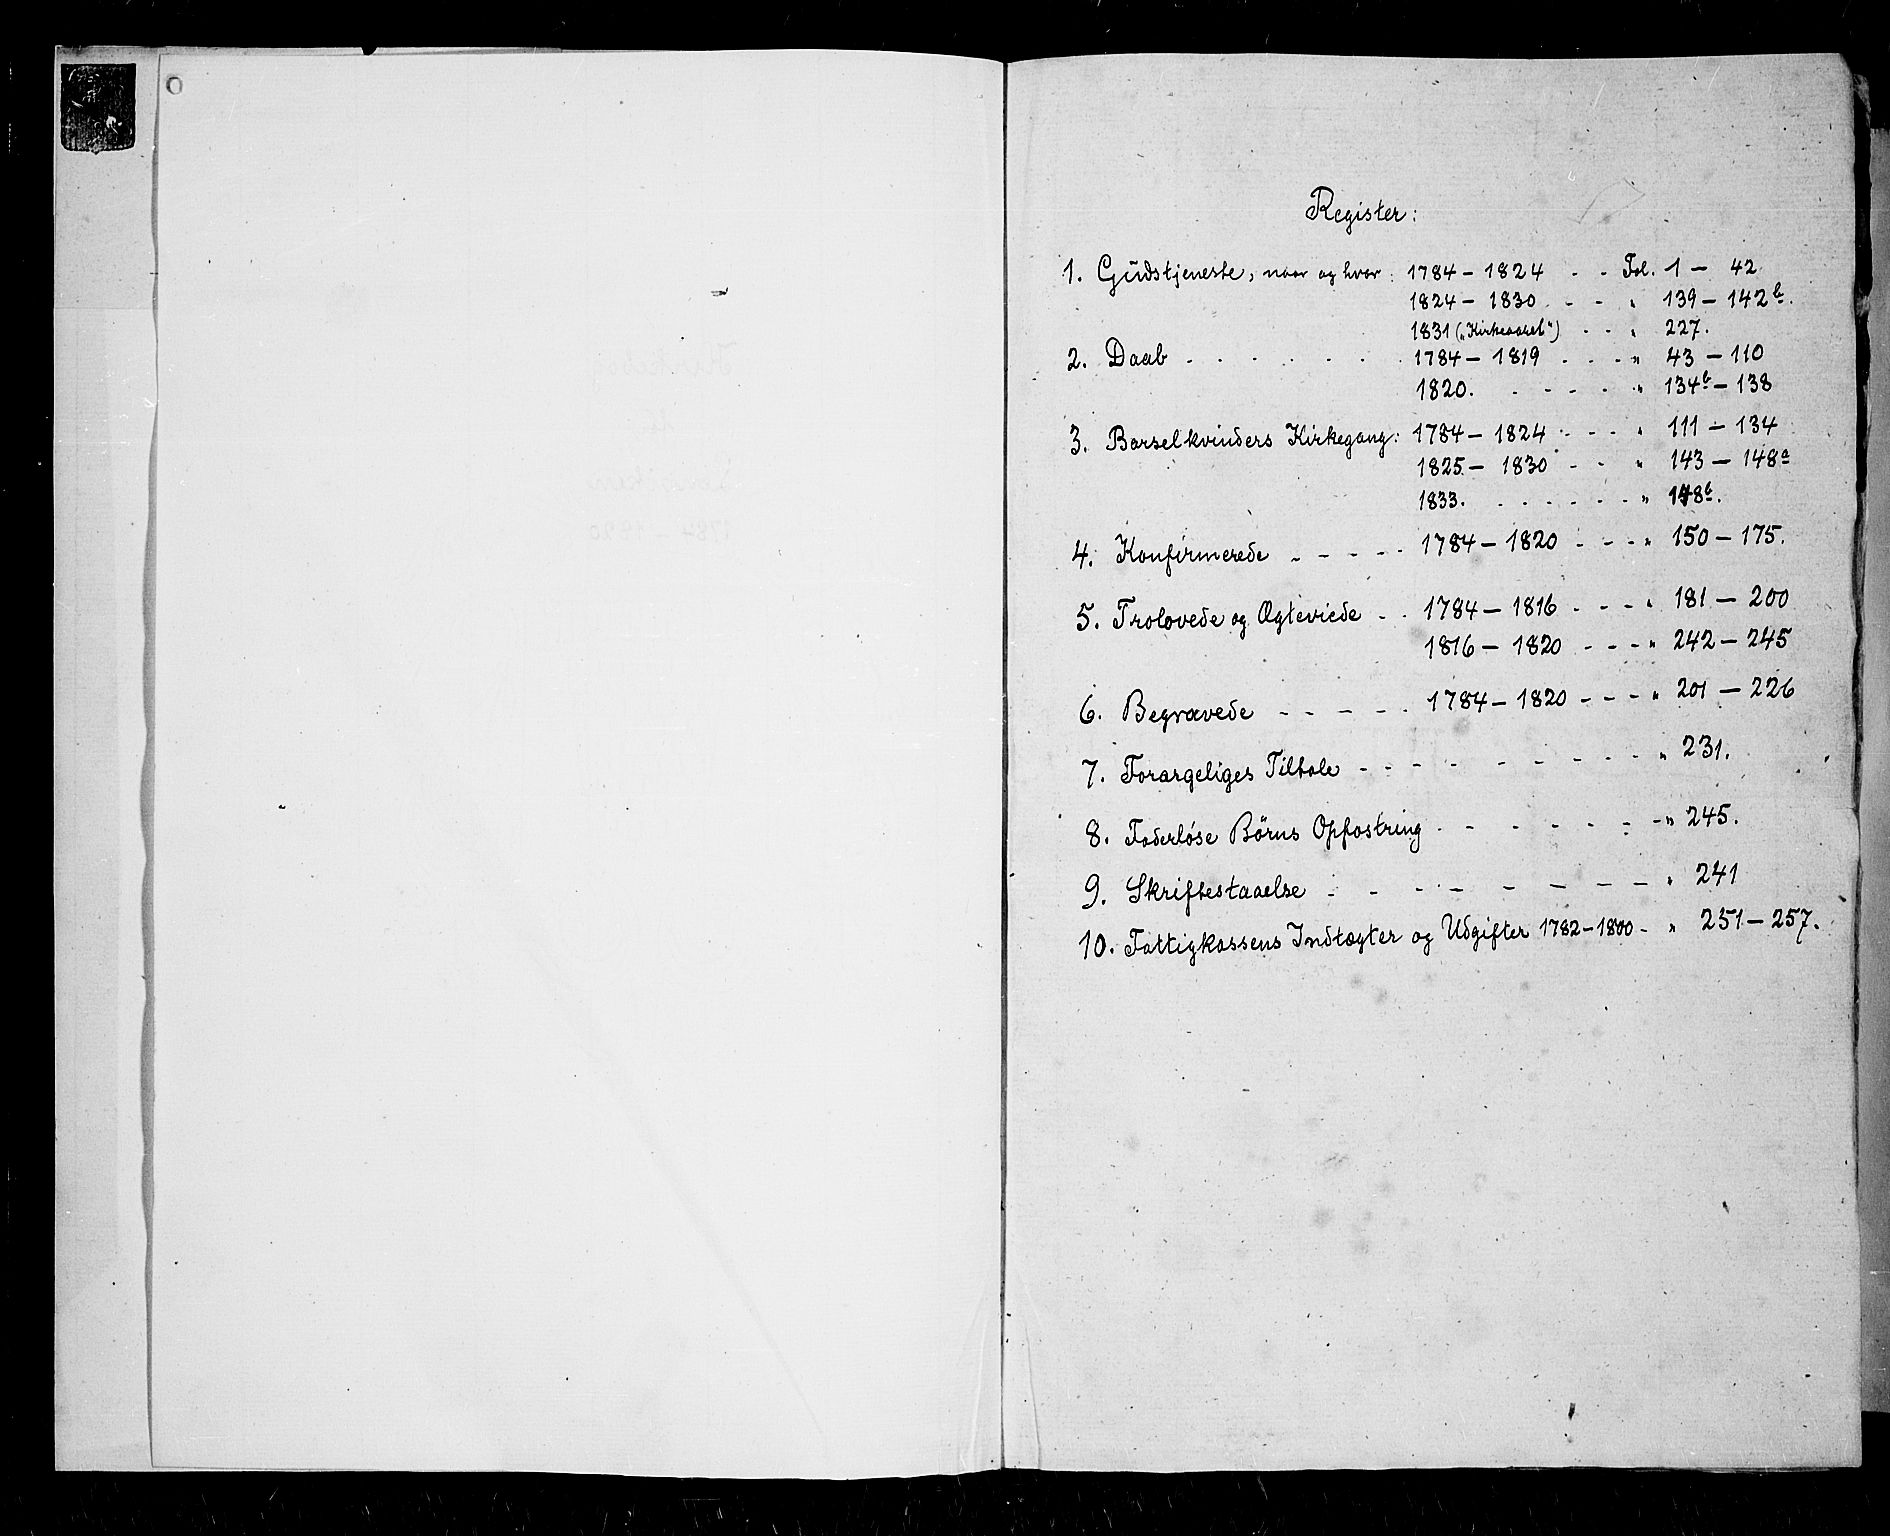 Register:
1. Gudstjeneste, naar og hvor: 1784 – 1824 - - Fol. 1 – 42
1824 – 1830 - - " 139 – 142b.
1831 („Kirkeaaret") - - " 227.
2. Daab - - - - - - 1784 – 1819 - - - " 43 – 110
1820. - - - - " 134b – 138
3. Barselkvinders Kirkegang: 1784 – 1824 - - - " 111 – 134
1825 – 1830 - - " 143 – 148a
1833. - - - - - " 148b.
4. Konfirmerede - - - - - 1784 – 1820 - - - " 150 – 175.
5. Trolovede og Ægteviede - - 1784 – 1816 - - - " 181 – 200
1816 – 1820 - - - " 242 – 245
6. Begravede - - - - - 1784 – 1820 - - - " 201 – 226
7. Forargeliges Tiltale - - - - - - - - - " 231.
8. Faderløse Börns Opfostring - - - - - - - " 245.
9. Skriftestaaelse - - - - - - - - - " 241
10. Fattigkassens Indtægter og Udgifter 1782 – 1800 - " 251 – 257.
1784 – 1820